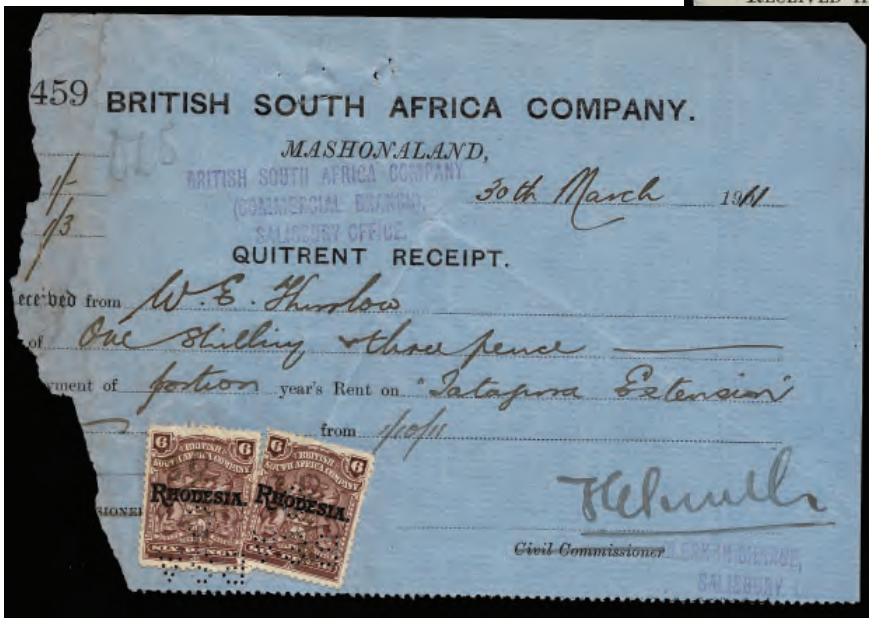 RECEIVED
459 BRITISH SOUTH AFRICA COMPANY.
MASHONALAND,
BRITISH SOUTH AFRICA COMPANY
(COMMERCIAL BRANCH),
SALISBURY OFFICE.
30th March 1911
1/-
1/3
QUITRENT RECEIPT.
eceived from W. E. Thurslow
of One Shilling & three pence
yment of portion year's Rent on "Tatagura Extension"
from 1/10/11
6 BRITISH 6
SOUTH AFRICA COMPANY
RHODESIA.
SIX PENCE
6 BRITISH 6
SOUTH AFRICA COMPANY
RHODESIA.
SIONER
Civil Commissioner
CLERK IN CHARGE,
SALISBURY